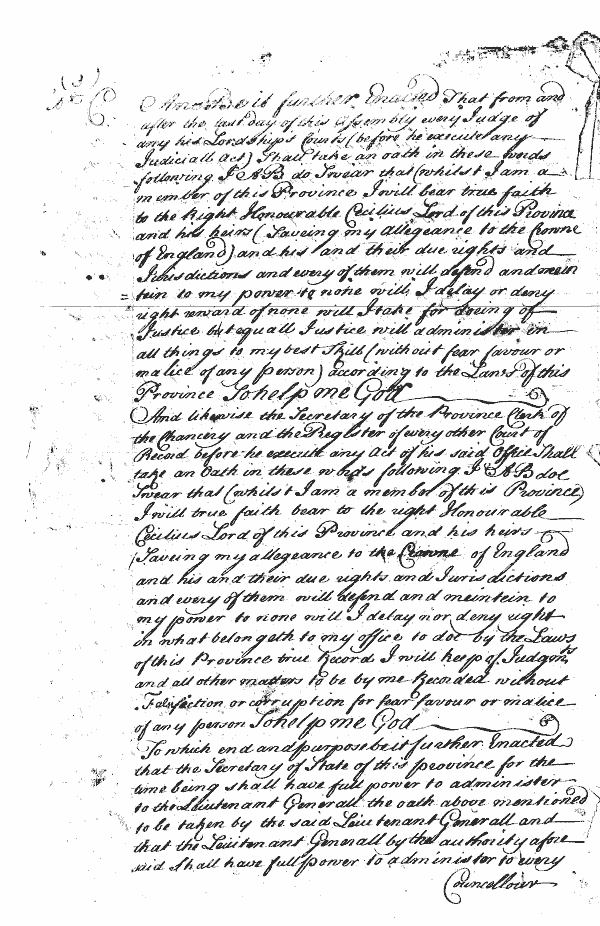 And be it further Enacted That from and
after the last day of this Assembly every Judge of
any his Lordships Courts (before he execute any
Judiciall Act) Shall take an oath in these words
following I A B do Swear that (whilst I am a
member of this Province I will bear true faith
to the Right Honourable Cecilius Lord of this Province
and his heirs (Saveing my allegeance to the Crowne
of England) and his and their due rights and
Jurisdictions and every of them will defend and mein
= tein to my power to none will I delay or deny
right reward of none will I take for doeing of
Justice but equall Justice will administer in
all things to my best Skill (without fear favour or
malice of any person) according to the Laws of this
Province So help me God
And likewise the Secretary of the Province Clerk of
the Chancery and the Register of every other Court of
Record before he execute any Act of his said Office Shall
take an Oath in these words following I A B doe
Swear that (whilst I am a member of this Province)
I will true faith bear to the right Honourable
Cecilius Lord of this Province and his heirs
(Saveing my allegeance to the Crowne of England
and his and their due rights and Jurisdictions
and every of them will defend and meintein to
my power to none will I delay nor deny right
in what belongeth to my office to doe by the Laws
of this Province true Record I will keep of Judgmts
and all other matters to be by me Recorded without
Falsifiction or corruption for fear favour or malice
of any person So help me God
To which end and purpose be it further Enacted
that the Secretary of State of this province for the
time being shall have full power to administer
to the Lieutenant Generall the oath above mentioned
to be taken by the said Leiutenant Generall and
that the Leiutenant Generall by the authority afore
said shall have full power to administer to every
Councellour